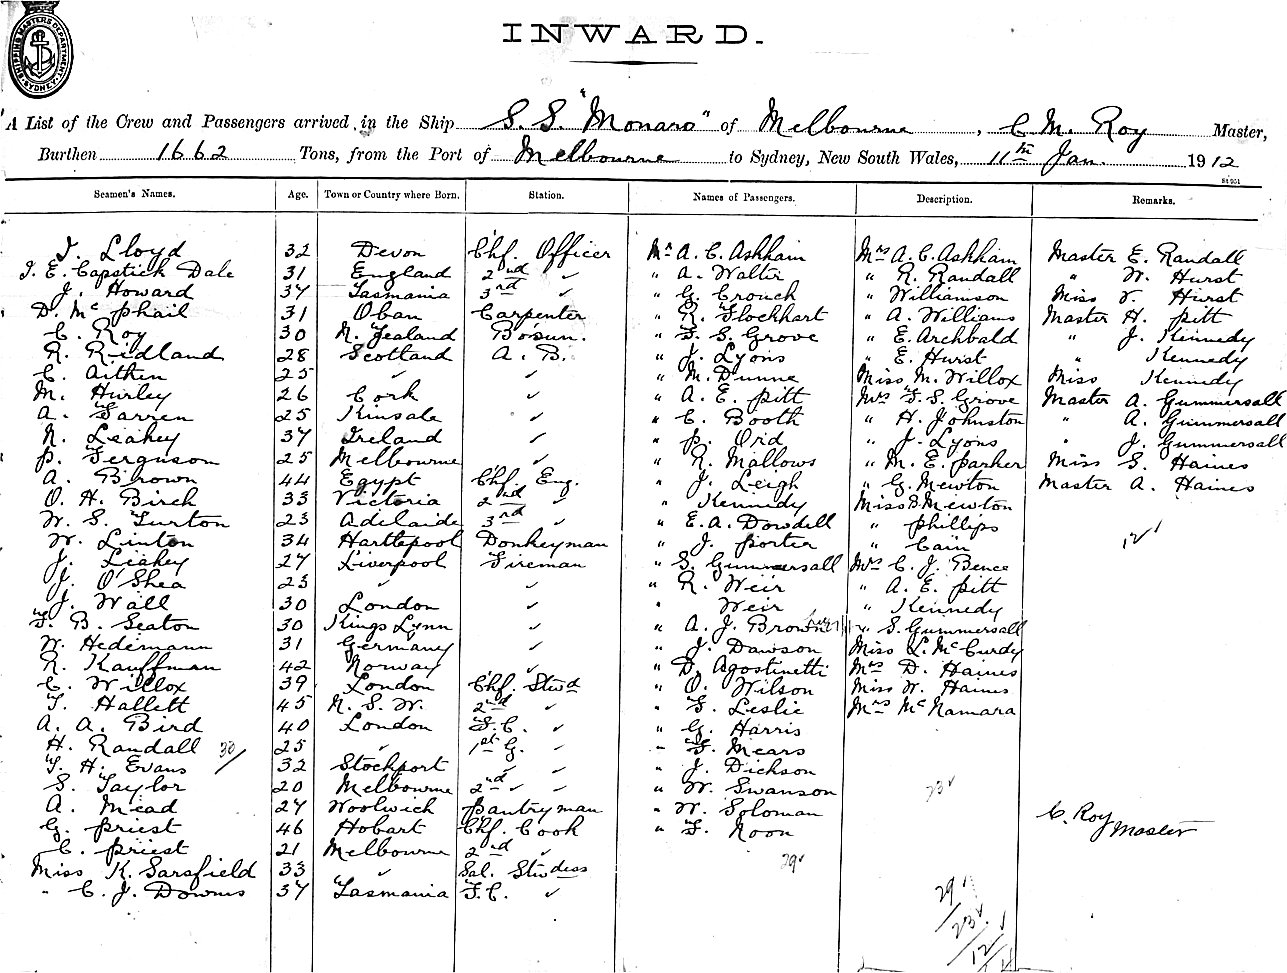 SHIPPING MASTERS DEPARTMENT. SYDNEY.
INWARD.
A List of the Crew and Passengers arrived in the Ship S. S. "Monaro" of Melbourne, C. M. Roy Master,
Burthen 1662 Tons, from the Port of Melbourne to Sydney, New South Wales, 11th Jan. 1912
Seamen's Names. Age. Town or Country where Born. Station. Names of Passengers. Description. Remarks.
J. Lloyd 32 Devon Chf. Officer Mr A. C. Ashham Mrs A. C. Ashham Master E. Randall
J. E. Capstick Dale 31 England 2nd ✓ " A. Walter " R. Randall " W. Hurst
J. Howard 37 Tasmania 3rd ✓ " G. Crouch " Williamson Miss V. Hurst
D. McPhail 31 Oban Carpenter " R. Stockhart " A. Williams Master H. Pitt
C. Roy 30 N. Zealand Bosun. " F. S. Grove " E. Archbald " J. Kennedy
R. Ridland 28 Scotland A. B. " J. Lyons " E. Hurst " Kennedy
C. Aitken 25 ✓ ✓ " M. Dunne Miss M. Willox Miss Kennedy
M. Hurley 26 Cork ✓ " A. E. Pitt Mrs F. S. Grove Master A. Gummersall
A. Farren 25 Kinsale ✓ " C. Booth " H. Johnston " A. Gummersall
N. Leahey 37 Ireland ✓ " P. Ord " J. Lyons " J. Gummersall
P. Ferguson 25 Melbourne ✓ " R. Mallows " M. E. Parker Miss S. Haines
A. Brown 44 Egypt Chf. Eng. " J. Leigh " G. Mewton Master A. Haines
O. H. Birch 33 Victoria 2nd ✓ " Kennedy Miss B. Mewton
W. S. Turton 23 Adelaide 3rd ✓ " E. A. Dowdell " Phillips
W. Linton 34 Hartlepool Donkeyman " J. Porter " Cain 12✓
J. Leahey 27 Liverpool Fireman " S. Gummersall Mrs C. J. Bence
J. O'Shea 23 ✓ ✓ " R. Weir " A. E. Pitt
J. Wall 30 London ✓ " Weir " Kennedy
F. B. Seaton 30 Kings Lynn ✓ " A. J. Brown " S. Gummersall
W. Hedemann 31 Germany ✓ " J. Dawson Miss L. McCurdy
R. Kauffman 42 Norway ✓ " D. Agostinetti Mrs D. Haines
C. Willox 39 London Chf. Stwd " O. Wilson Miss W. Haines
F. Hallett 45 N. S. W. 2nd ✓ " F. Leslie Mrs McNamara
A. A. Bird 40 London F. C. ✓ " G. Harris
H. Randall 30/ 25 ✓ 1st G. ✓ " F. Mears
F. H. Evans 32 Stockport ✓ ✓ " J. Dickson
S. Taylor 20 Melbourne 2nd ✓ ✓ " W. Swanson 23✓
A. Mead 27 Woolwich Pantryman " W. Soloman
G. Priest 46 Hobart Chf. Cook " F. Noon C. Roy Master
C. Priest 21 Melbourne 2nd ✓ 29✓
Miss K. Sarsfield 33 ✓ Sal. Stwdess
" C. J. Downes 37 Tasmania F. C. ✓ 29
23✓
12✓